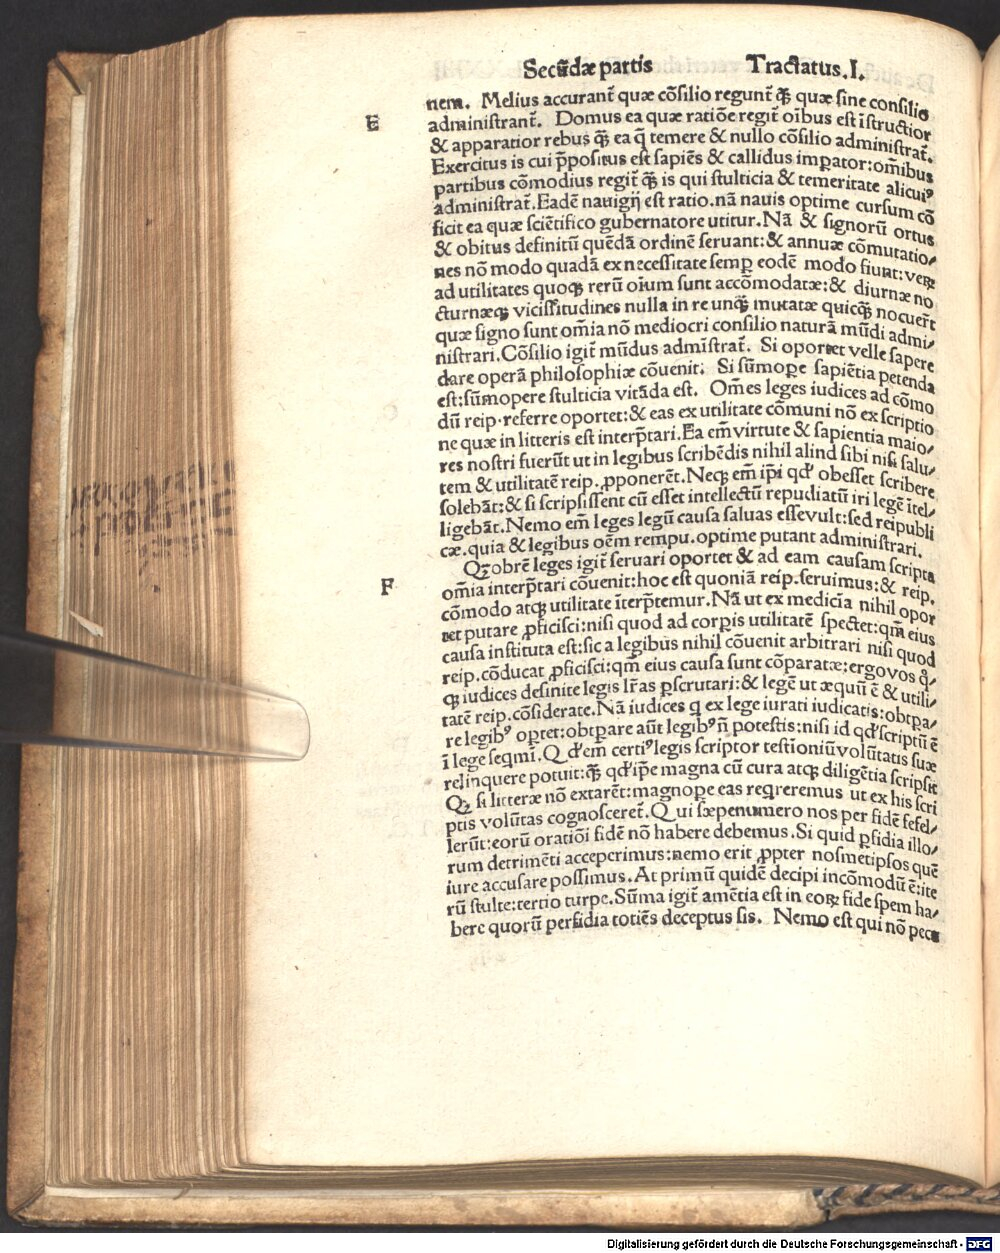 Secūdæ partis Tractatus.I.
nem. Melius accurant̄ quæ cōsilio regunt̄ ꝗ̃ quæ sine consilio
E
administrant̄. Domus ea quæ ratiōe regit̄ oībus est īstructior
& apparatior rebus ꝗ̃ ea q̄ temere & nullo cōsilio administrat̄.
Exercitus is cui p̄positus est sapiēs & callidus imꝑator:om̄ibus
partibus cōmodius regit̄ ꝗ̃ is qui stulticia & temeritate alicuiꝰ
administrat̄. Eadē nauigij est ratio. nā nauis optime cursum cō
ficit ea quæ sciētifico gubernatore utitur. Nā & signorū ortus
& obitus definitū quēdā ordinē seruant: & annuæ cōmutatio/
nes nō modo quadā ex necessitate semꝑ eodē modo fiunt: veꝝ
ad utilitates quoqꝫ rerū oīum sunt accōmodatæ: & diurnæ no
cturnæqꝫ vicissitudines nulla in re unqꝫ̃ mutatæ quicqꝫ̃ nocuer̄t
quæ signo sunt om̄ia nō mediocri consilio naturā mūdi admi/
nistrari. Cōsilio igit̄ mūdus adm̄istrat̄. Si oportet velle sapere
dare operā philosophiæ cōuenit. Si sūmoꝑe sapiētia petenda
est: sūmopere stulticia vitāda est. Om̄es leges iudices ad cōmo
dū reip. referre oportet: & eas ex utilitate cōmuni nō ex scriptio
ne quæ in litteris est interp̄tari. Ea em̄ virtute & sapientia maio/
res nostri fuerūt ut in legibus scribēdis nihil alind sibi nisi salu/
tem & utilitatē reip. ꝓponerēt. Neqꝫ em̄ ip̄i qd' obesset scribere
solebāt: & si scripsissent cū esset intellectū repudiatū iri legē ītel/
ligebāt. Nemo em̄ leges legū causa saluas esse vult: sed reipubli
cæ. quia & legibus oēm rempu. optime putant administrari.
Qꝫobrē leges igit̄ seruari oportet & ad eam causam scripta
F
om̄ia interp̄tari cōuenit: hoc est quoniā reip. seruimus: & reip.
cōmodo atqꝫ utilitate īterp̄temur. Nā ut ex medicīa nihil opor
tet putare ꝓficisci: nisi quod ad corꝑis utilitatē spectet: qm̄ eius
causa instituta est: sic a legibus nihil cōuenit arbitrari nisi quod
reip. cōducat ꝓficisci: qm̄ eius causa sunt cōparatæ: ergo vos q̄/
qꝫ iudices desinite legis lr̄as ꝑscrutari: & legē ut æquū ē & utili/
tatē reip. cōsiderate. Nā iudices q ex lege iurati iudicatis: obtꝑa/
re legibꝰ oꝑtet: obtꝑare aūt legibꝰ ñ potestis: nisi id qd' scriptū ē
ī lege seqmī. Q d' em̄ certiꝰ legis scriptor testīoniū volūtatis suæ
relinquere potuit: ꝗ̃ qd' ip̄e magna cū cura atqꝫ diligētia scripsit
Qꝫ si litteræ nō extarēt: magnope eas reqreremus ut ex his scri
ptis volūtas cognosceret̄. Qui sæpenumero nos per fidē fefel/
lerūt: eorū oratiōi fidē nō habere debemus. Si quid ꝑfidia illo/
rum detrimēti acceperimus: nemo erit ꝓpter nosmetipsos quē
iure accusare possimus. At primū quidē decipi incōmodū ē: ite
rū stulte: tertio turpe. Sūma igit̄ amētia est in eoꝝ fide spem ha/
bere quorū perfidia totiēs deceptus sis. Nemo est qui nō pecu
Digitalisierung gefördert durch die Deutsche Forschungsgemeinschaft - DFG